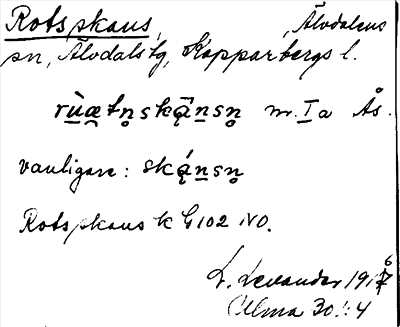 Rotsskans, Älvdalens
sn, Älvdals tg, Kopparbergs l.
rù̱æ̯tn̥ską̂n̠sn̥ m. Ia Ås.
vanligare: ską́n̠sn̥
Rotsskans k G102 NO.
L. Levander 191
Ulma 30:4